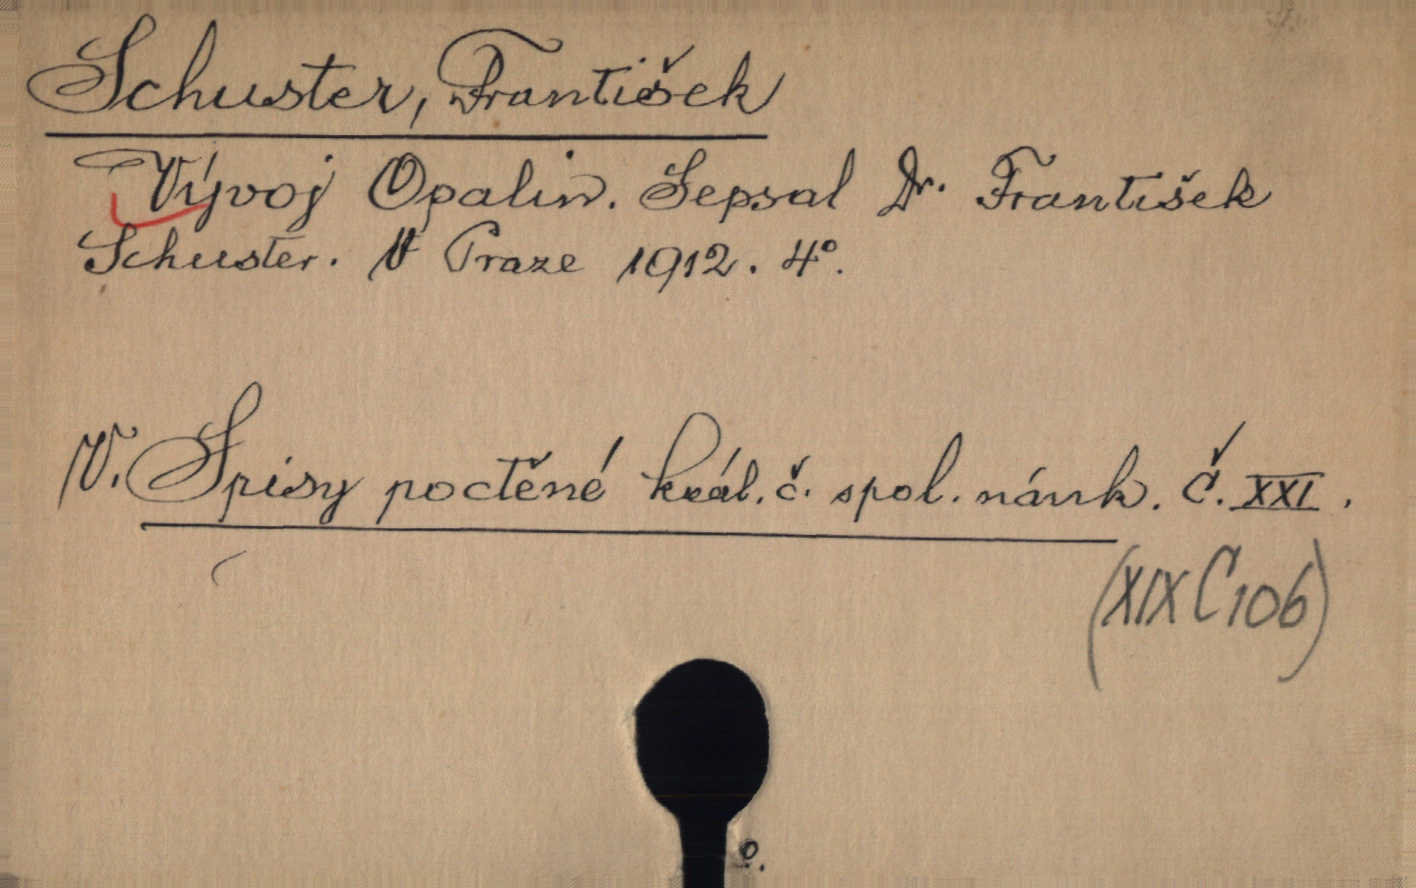 Schuster, František
Vývoj Opalin. Sepsal Dr. František
Schuster. V Praze 1912. 4°.
V. Spisy poctěné král. č. spol. náuk. Č. XXI.
(XIX C 106)